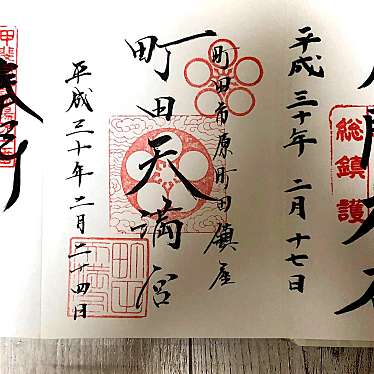 平成三十年 二月 十七日
総鎮護
町田市原町田鎮座
町田天満宮
平成三十年二月二十四日
奉拝